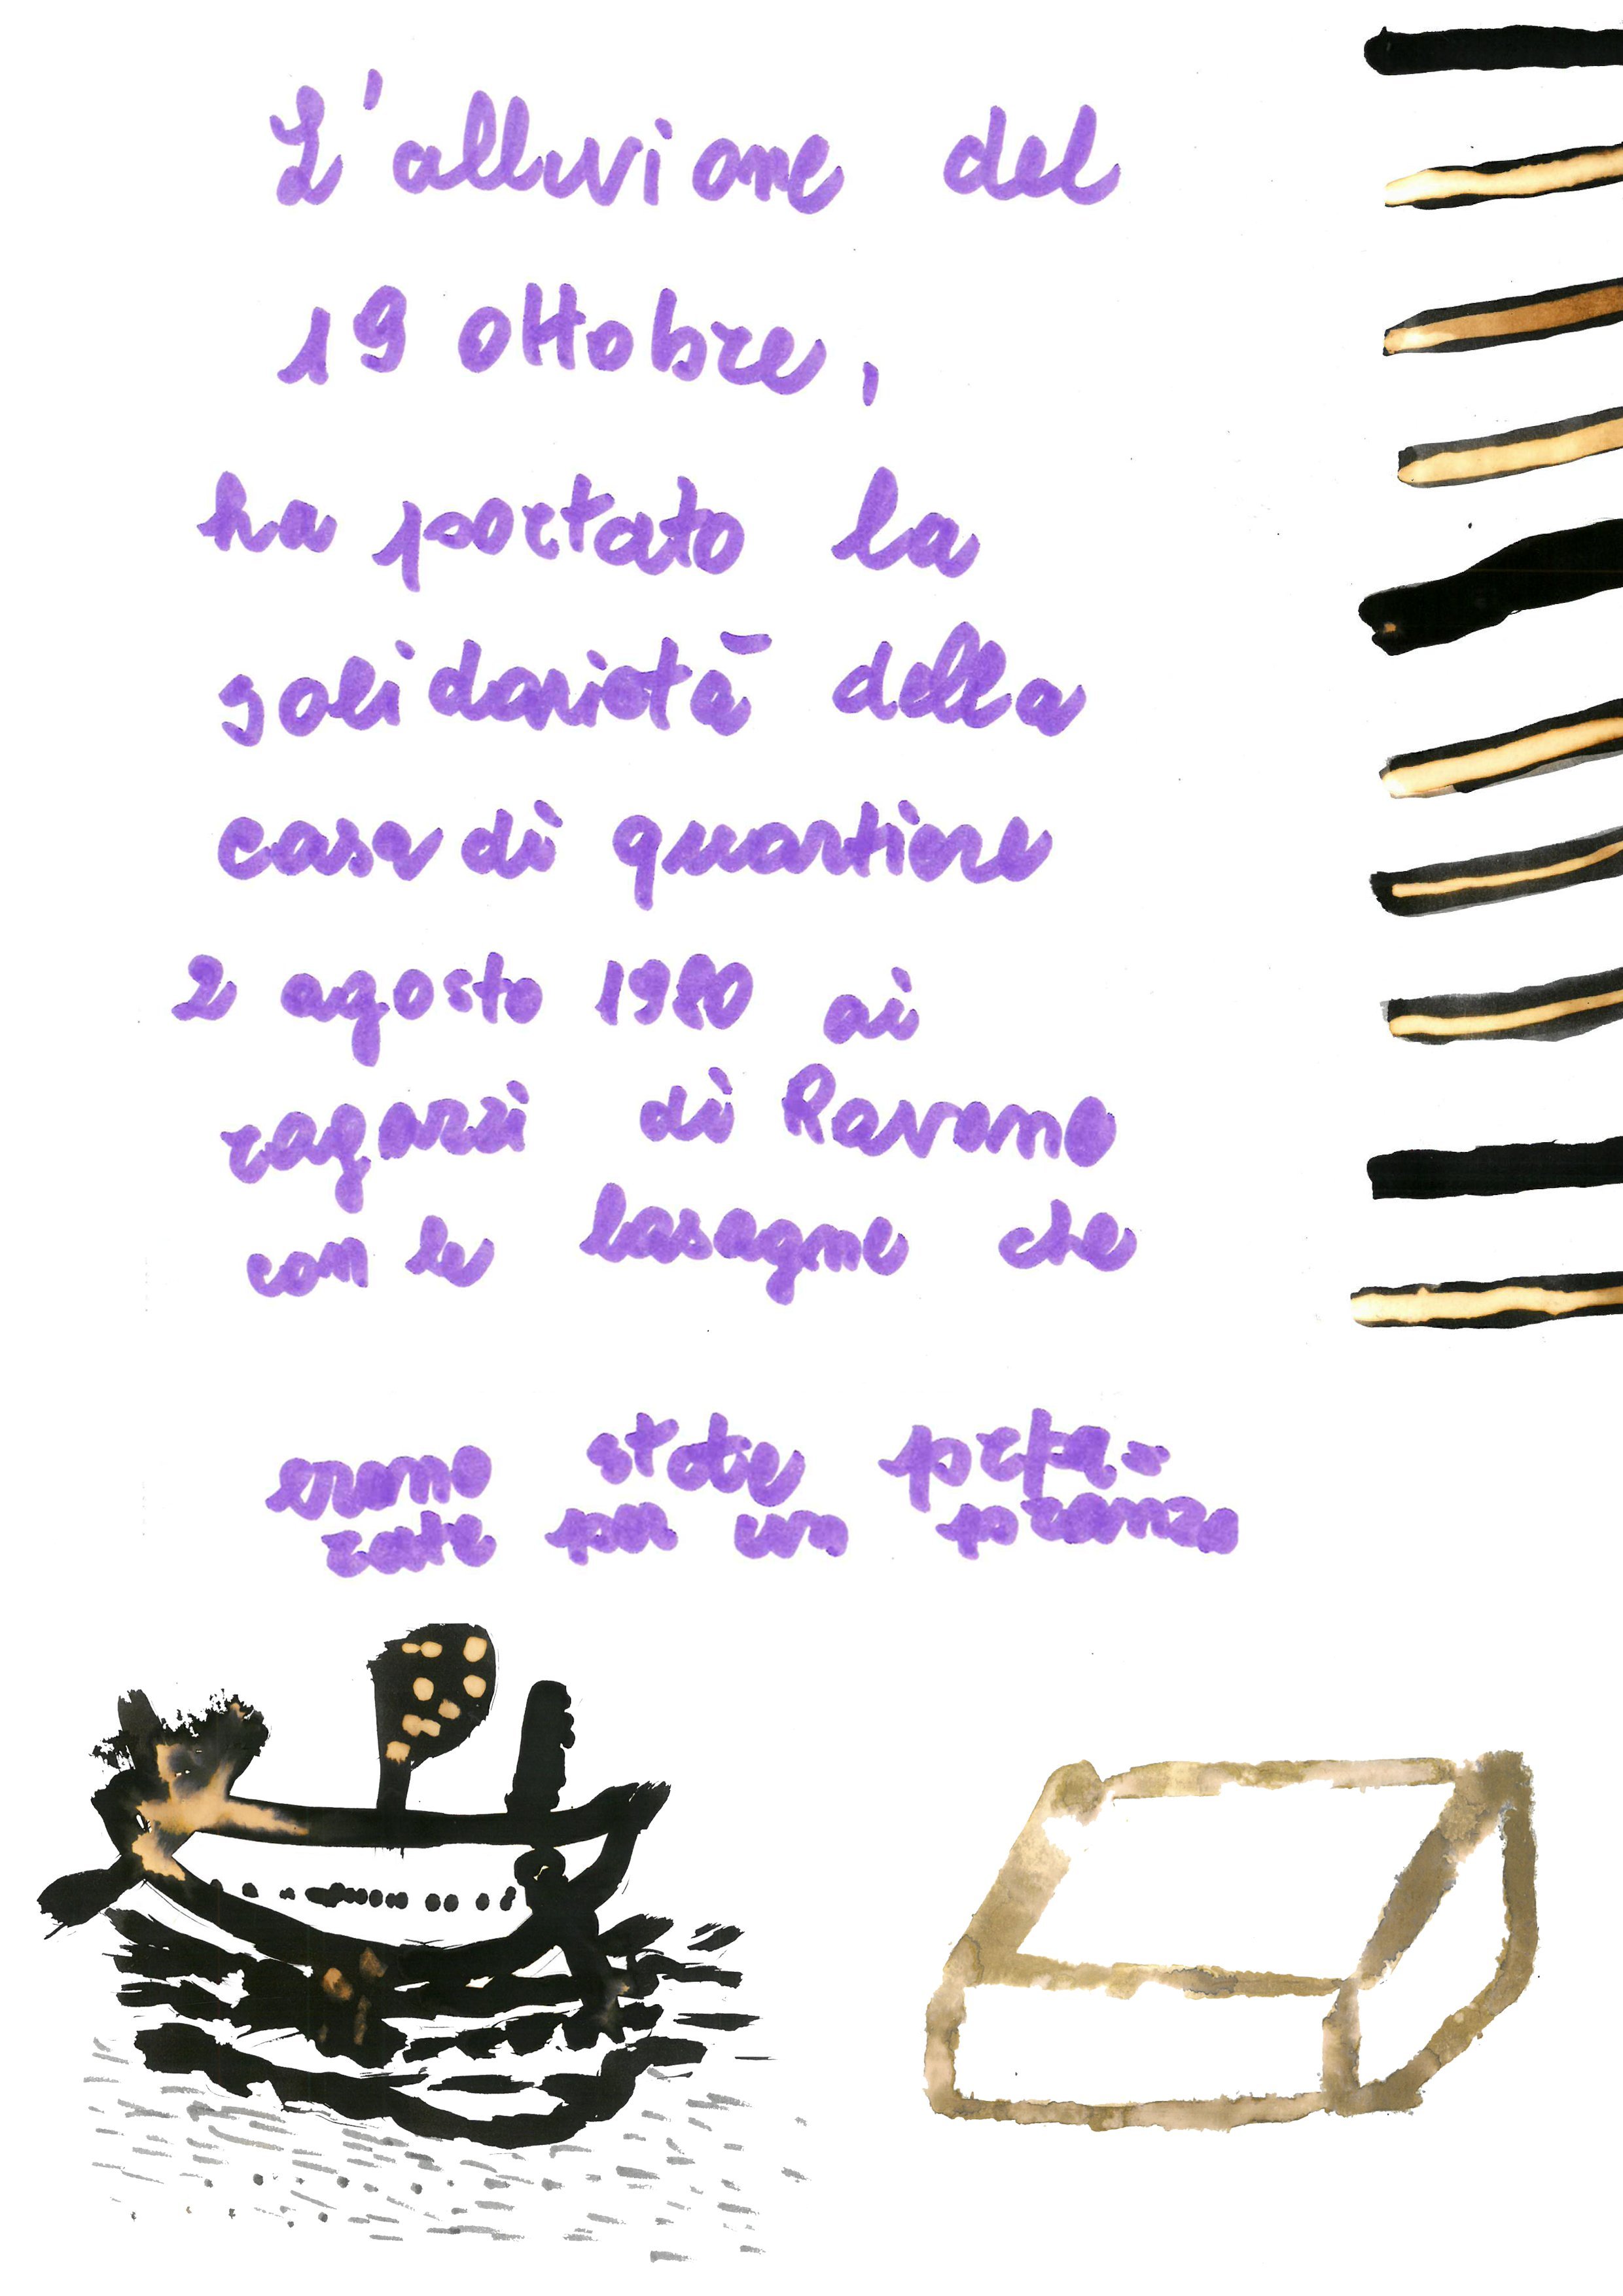 L'alluvione del
19 ottobre,
ha portato la
solidarietà della
casa di quartiere
2 agosto 1980 ai
ragazzi di Raveno
con le lasagne che
erano state prepa=
rate per un pranzo